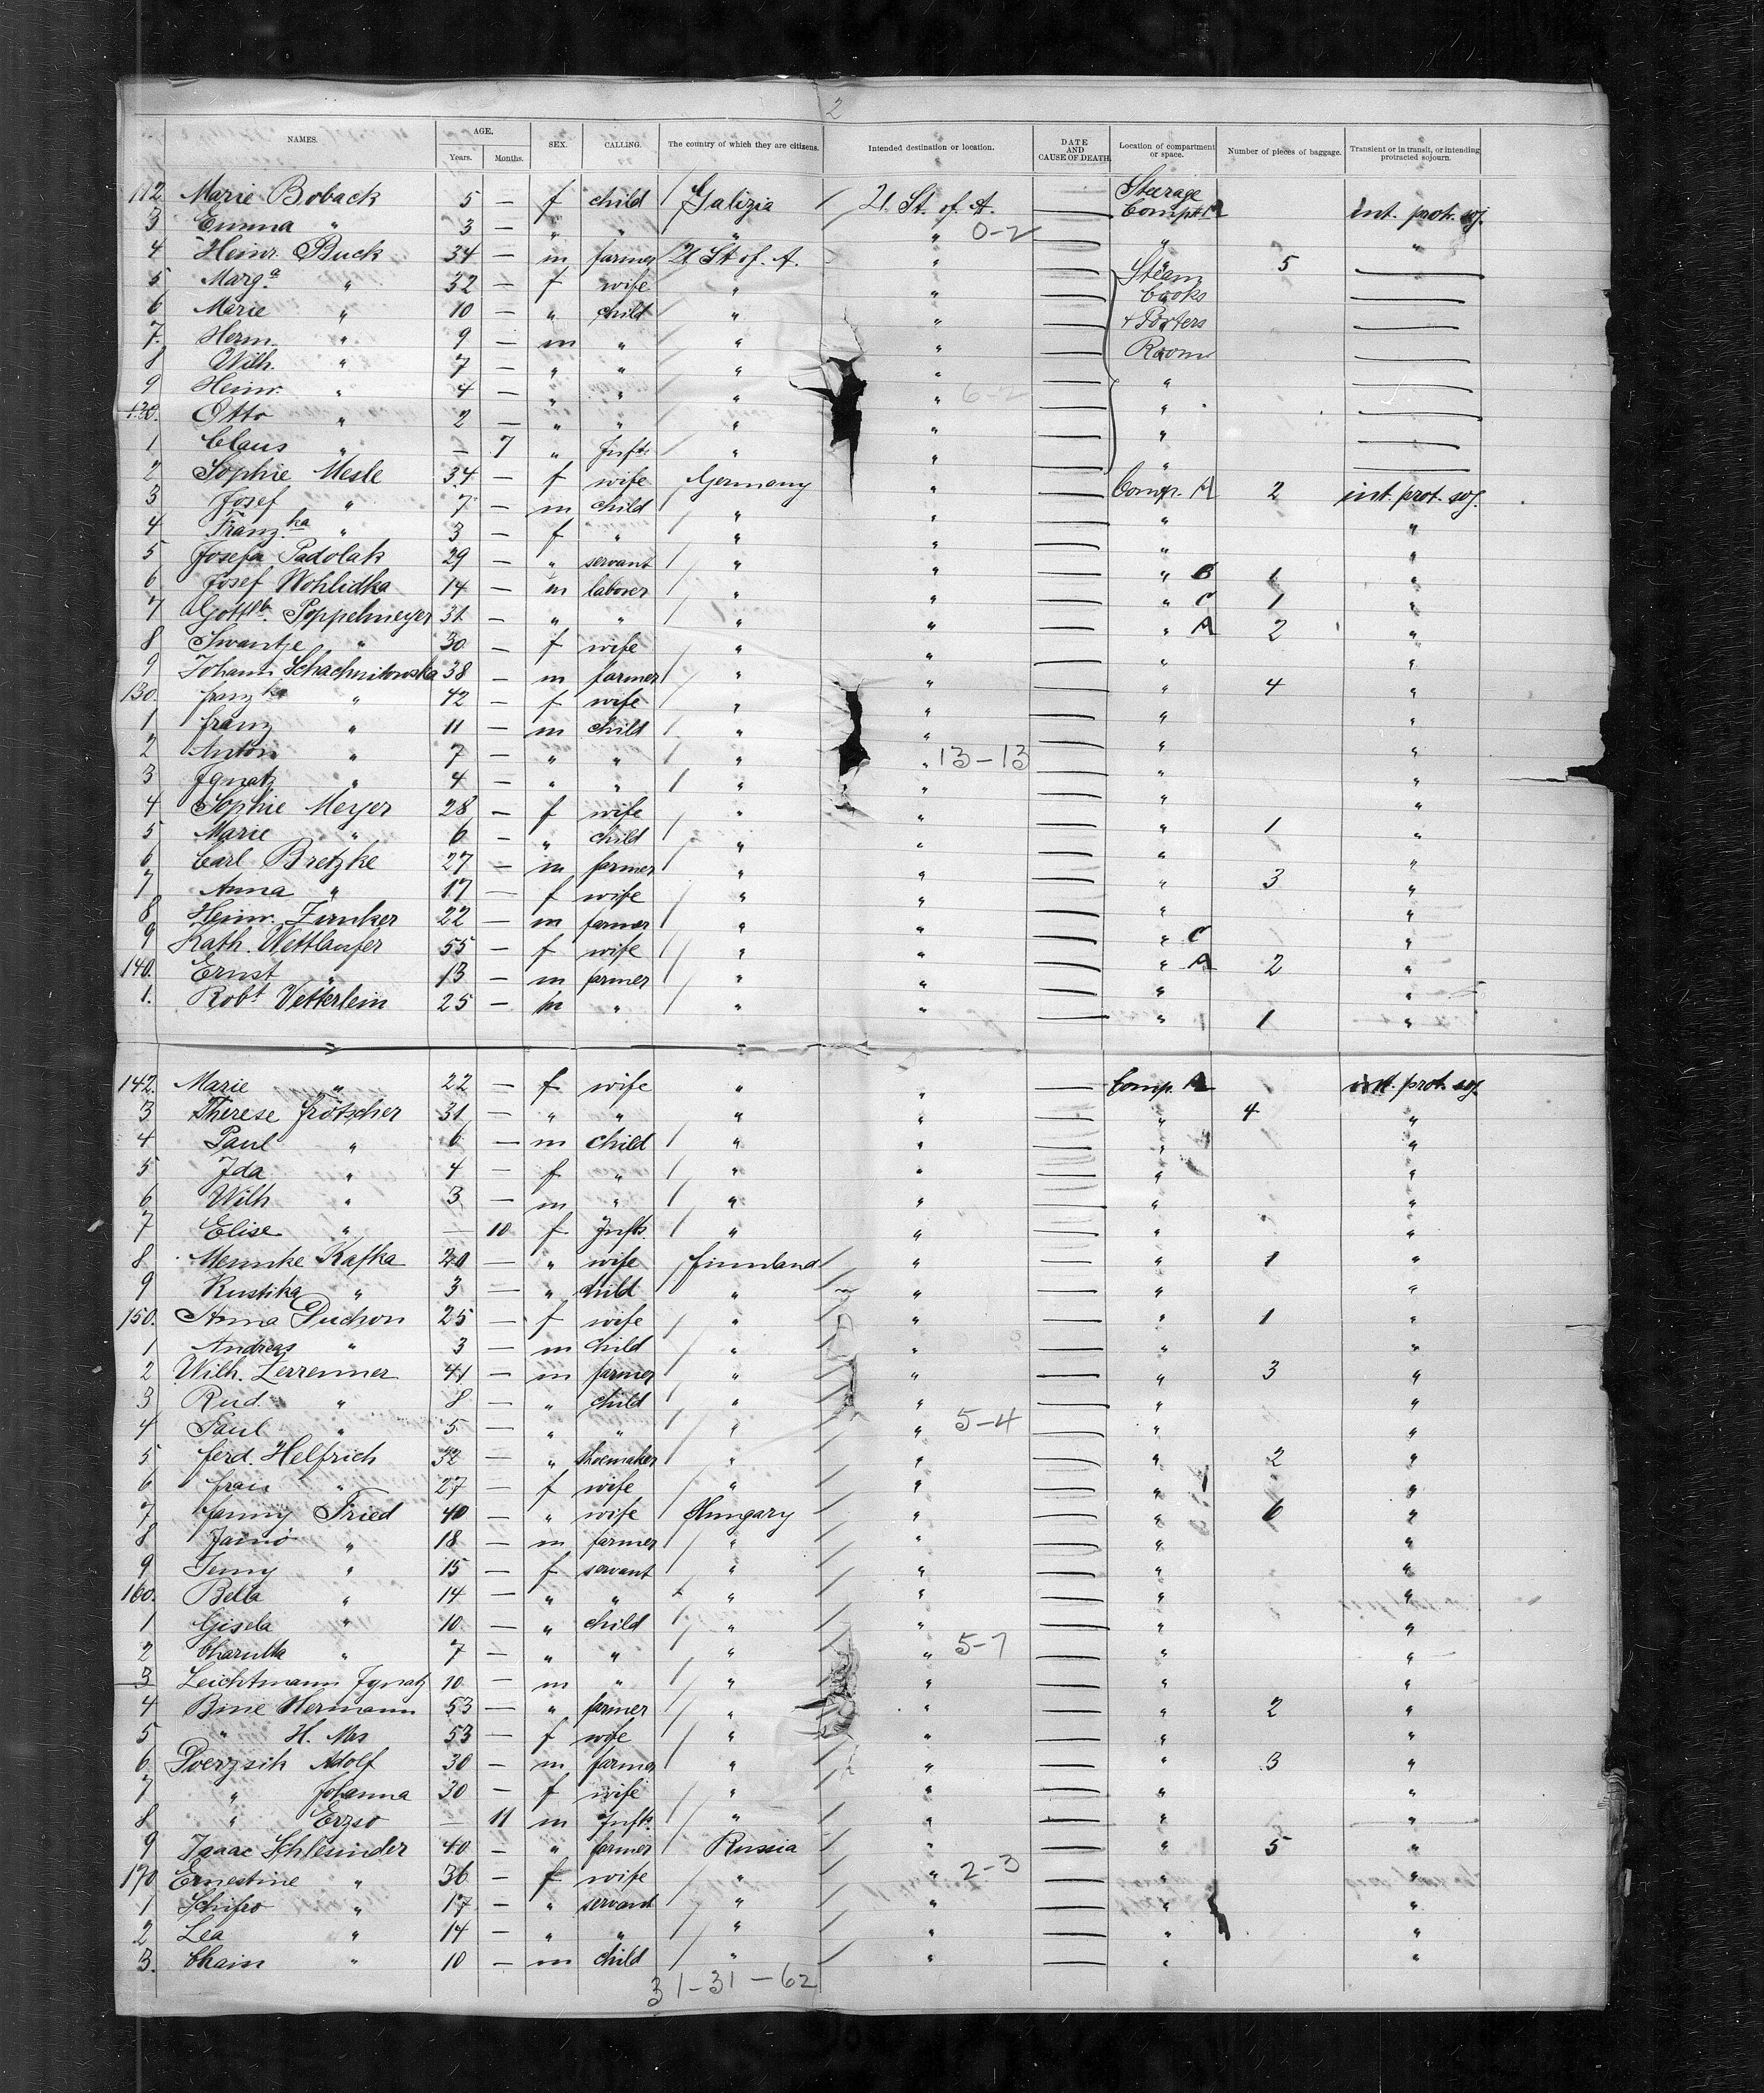 2
NAMES. AGE. Years. Months. SEX. CALLING. The country of which they are citizens. Intended destination or location. DATE AND CAUSE OF DEATH. Location of compartment or space. Number of pieces of baggage. Transient or in transit, or intending protracted sojourn.
112 Marie Boback 5 — f child Galizia U. St. of A. — Steerage Comp. A int. prot. soj.
3 Emma " 3 — " " " " 0-2 — " "
4 Heinr. Buck 34 — m farmer U St of. A. " — " 5 —
5 Marg.a " 32 — f wife " " — Steam —
6 Marie " 10 — " child " " — Cooks —
7. Herm. " 9 — m " " " — + Porters —
8 Wilh. " 7 — " " " " — Room —
9 Heinr. " 4 — " " " " 6-2 — " —
120. Otto " 2 — " " " " — " —
1 Claus " — 7 " Inft. " " — " —
2 Sophie Mesle 34 — f wife Germany " — Comp. A 2 int. prot. soj.
3 Josef " 7 — m child " " — " "
4 Franz.ka " 3 — f " " " — " "
5 Josefa Padolak 29 — " servant " " — " B 1 "
6 Josef Wohlidka 14 — m laborer " " — " C 1 "
7 Gottlb. Poppelmeyer 31 — " " " " — " A 2 "
8 Swantje " 30 — f wife " " — " "
9 Johann Schachnitowska 38 — m farmer " " — " 4 "
130. franzka " 42 — f wife " " — " "
1 franz " 11 — m child " " — " "
2 Anton " 7 — " " " " 13-13 — " "
3 Ignatz " 4 — " " " " — " "
4 Sophie Meyer 28 — f wife " " — " 1 "
5 Marie " 6 — " child " " — " "
6 Carl Bretzke 27 — m farmer " " — " 3 "
7 Anna " 17 — f wife " " — " "
8 Heinr. Zunker 22 — m farmer " " — " C "
9 Kath. Wettlaufer 55 — f wife " " — " A 2 "
140. Ernst " 13 — m farmer " " — " "
1. Robt Vetterlein 25 — m " " " — " 1 "
142. Marie " 22 — f wife " " — Comp. A int. prot. soj.
3 Therese Frötscher 31 — " " " " — " 4 "
4 Paul " 6 — m child " " — " "
5 Ida " 4 — f " " " — " "
6 Wilh " 3 — m " " " — " "
7 Elise " — 10 f Inft. " " — " "
8 Mennke Kafka 20 — " wife finnland " — " 1 "
9 Rustika " 3 — " child " " — " "
150. Anna Puchon 25 — f wife " " — " 1 "
1 Andreas " 3 — m child " " — " "
2 Wilh. Zerrenner 41 — m farmer " " — " 3 "
3 Rud. " 8 — " child " " — " "
4 Paul " 5 — " " " " 5-4 — " "
5 ferd. Helfrich 32 — " shoemaker " " — " 2 "
6 frau " 27 — f wife " " — " "
7 fanny Fried 40 — " wife Hungary " — " 6 "
8 " 18 — m farmer " " — " "
9 Jenny " 15 — f servant " " — " "
160. Bella " 14 — " " " " — " "
1 Gisela " 10 — " child " " — " "
2 " 7 — " " " " 5-7 — " "
3 Leichtmann Ignatz 10 — m " " " — " "
4 Bine Hermann 53 — " farmer " " — " 2 "
5 " H. Mrs 53 — f wife " " — " "
6 Poerzsik Adolf 30 — m farmer " " — " 3 "
7 " Johanna 30 — f wife " " — " "
8 " Erzso — 11 m Inft. " " — " "
9 Isaac Schleinder 40 — " farmer Russia " — " 5 "
170 Ernestine " 36 — f wife " " 2-3 — " "
1 Schifro " 17 — " servant " " — " "
2 Lea " 14 — " " " " — " "
3. Chain " 10 — m child " " — " "
31-31-62